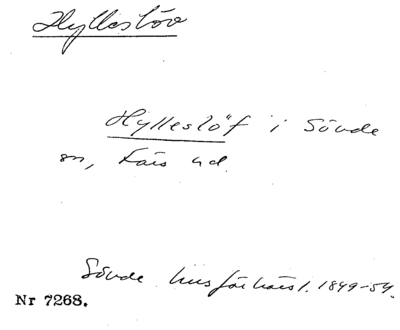 Hylleslöv
Hylleslöf i Sövde
sn, Färs hd.
Sövde husförhörsl. 1849-54.
Nr 7268.